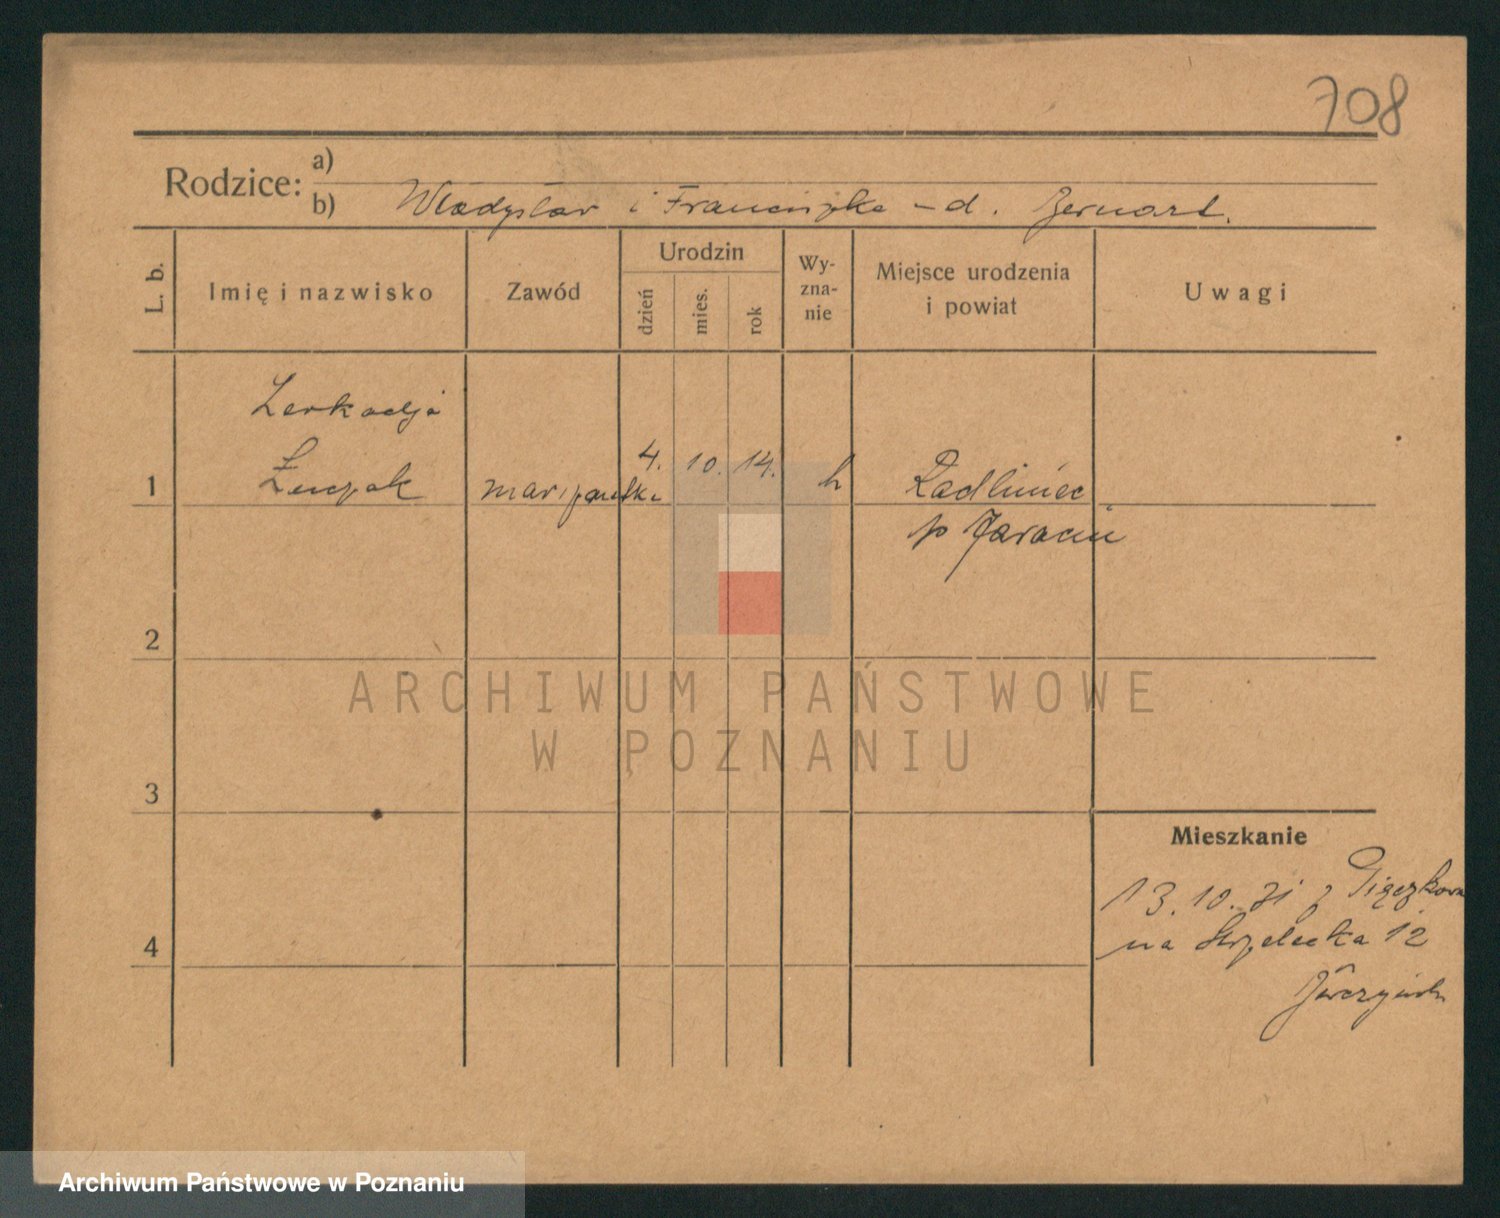 708
Rodzice: a)
b) Władysław i Franciszka - d. Bernart.
L. b. Imię i nazwisko Zawód Urodzin dzień mies. rok Wy-zna-nie Miejsce urodzenia i powiat Uwagi
Leokadja
1 4. 10. 14. h Radliniec
p Jarocin
2
ARCHIWUM PAŃSTWOWE
W POZNANIU
3
Mieszkanie
13. 10. 31 z Piączkowa
4 na Strzelecka 12
Archiwum Państwowe w Poznaniu